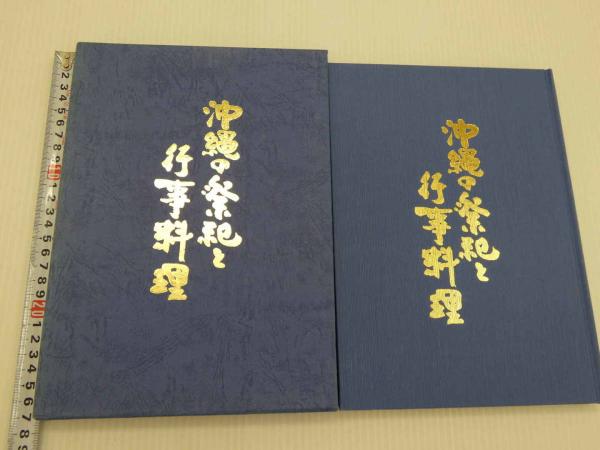 沖縄の祭祀と
行事料理
沖縄の祭祀と
行事料理
2 3 4 5 6 7 8 9 10 1 2 3 4 5 6 7 8 9 20 1 2 3 4 5 6 7 8 9